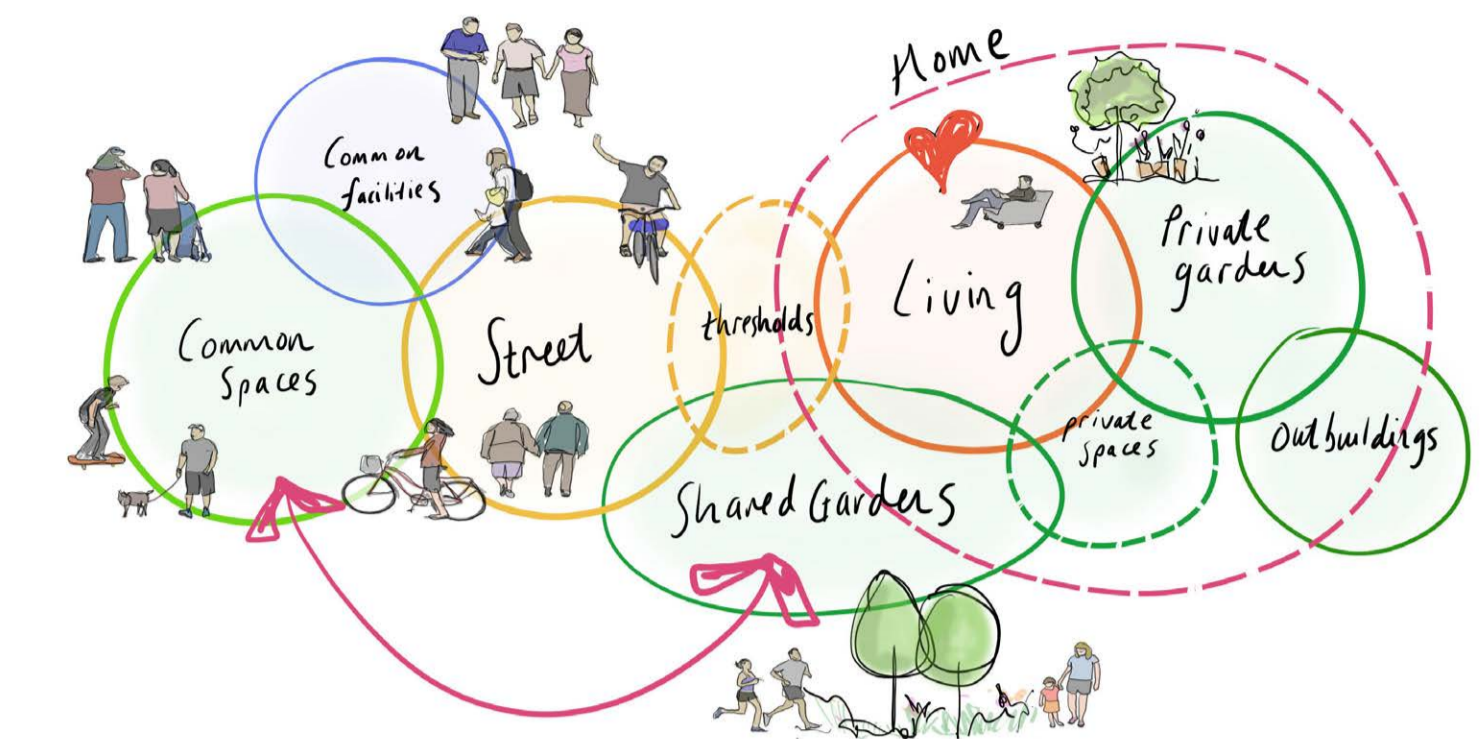 Home
Common
facilities
Common
Spaces
Street
thresholds
Living
Private
gardens
private
spaces
Outbuildings
Shared Gardens